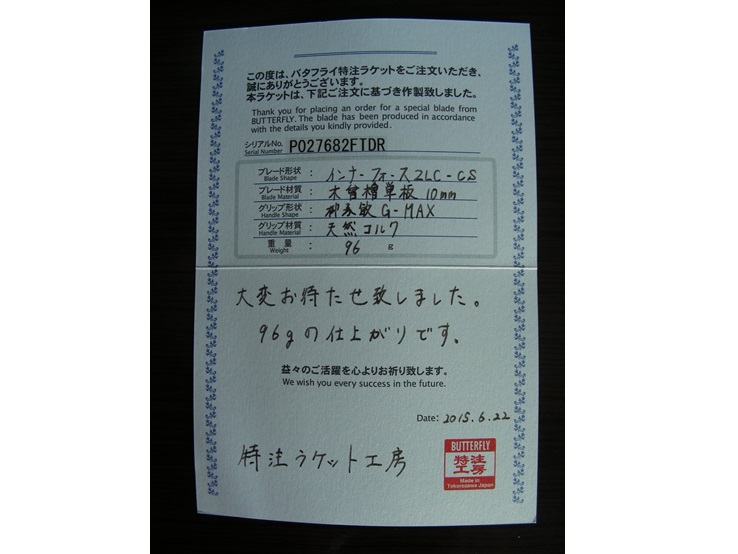 この度は、バタフライ特注ラケットをご注文いただき、
誠にありがとうございます。
本ラケットは、下記ご注文に基づき作製致しました。
Thank you for placing an order for a special blade from
BUTTERFLY. The blade has been produced in accordance
with the details you kindly provided.
シリアルNo. P027682FTDR
Serial Number
ブレード形状 : インナーフォース ZLC-CS
Blade Shape
ブレード材質 : 木曽檜単板 10mm
Blade Material
グリップ形状 : 柳承敏 G-MAX
Handle Shape
グリップ材質 : 天然コルク
Handle Material
重量 : 96 g
Weight
大変お待たせ致しました。
96gの仕上がりです。
益々のご活躍を心よりお祈り致します。
We wish you every success in the future.
Date: 2015.6.22
特注ラケット工房
BUTTERFLY
特注
工房
Made in
Tokorozawa Japan